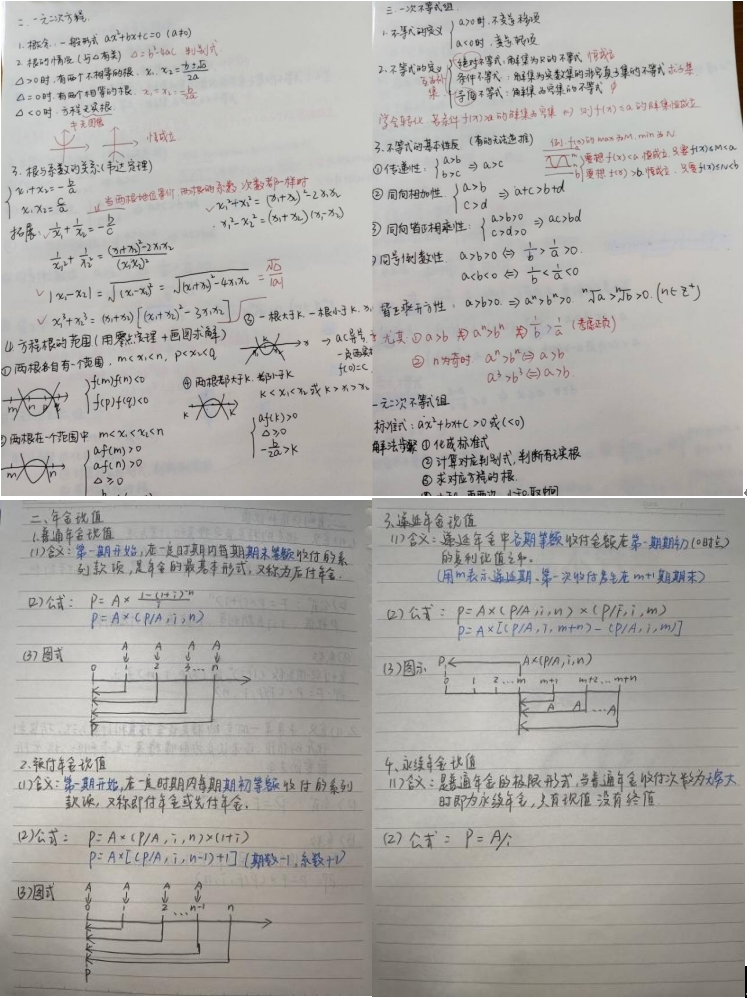 二.一元二次方程.
1.概念. 一般形式 ax²+bx+c=0 (a≠0)
2.根的情况(与△有关) △=b²-4ac 判别式.
△>0时.有两个不相等的根. x₁,x₂=
△=0时.有两个相等的根. x₁=x₂=-b/2a
△<0时.方程无实根
恒成立
3.根与系数的关系(韦达定理)
x₁+x₂=-b/a
x₁x₂=c/a
当两根地位等价,两根的系数,次数都一样时
拓展: 1/x₁+1/x₂=-b/c
x₁²+x₂²=(x₁+x₂)²-2x₁x₂
x₁²-x₂²=(x₁+x₂)(x₁-x₂)
1/x₁²+1/x₂²=((x₁+x₂)²-2x₁x₂)/(x₁x₂)²
|x₁-x₂|=√(x₁-x₂)²=√(x₁+x₂)²-4x₁x₂=√△/|a|
x₁³+x₂³=(x₁+x₂)[(x₁+x₂)²-3x₁x₂]
③一根大于k.一根小于k.
4.方程根的范围(用零点定理+画图求解)
→ac异号,
f(0)=c
①两根各自有一个范围. m<x₁<n, p<x₂<q
f(m)f(n)<0
f(p)f(q)<0
m n p q
④两根都大于k.都小于k
k<x₁<x₂或k>x₁>x₂
k k
af(k)>0
△≥0
-b/2a>k
②两根在个范围中 m<x₁<x₂<n
af(m)>0
af(n)>0
△≥0
m n
三.一次不等式组.
1.不等式的定义
a>0时.不变号移项
a<0时.变号移项
2.不等式的定义
绝对不等式:解集为R的不等式 恒成立
条件不等式:解集为实数集的非空真子集的不等式 求子集
矛盾不等式:解集为空集的不等式 ∅
3.不等式的基本性质
①传递性: a>b
b>c ⇒ a>c
例. f(x)的max为M. min为N
要想f(x)<a恒成立.只需f(x)≤M<a
要想f(x)>b.恒成立.只需f(x)≥N>b
②同向相加性. a>b
c>d ⇒ a+c>b+d
③同向皆正相乘性: a>b>0
c>d>0 ⇒ ac>bd
同号倒数性. a>b>0 ⇔ 1/b>1/a>0.
a<b<0 ⇔ 1/b<1/a<0
皆正乘开方性. a>b>0. ⇒ aⁿ>bⁿ>0 ⁿ√a>ⁿ√b>0.(n∈Z⁺)
尤其 ①a>b ⇏ aⁿ>bⁿ ⇏ 1/b>1/a (考虑正负)
②n为奇时 aⁿ>bⁿ⇔a>b
a³>b³⇔a>b
一元二次不等式组
标准式: ax²+bx+c>0或(<0)
解法步骤 ①化成标准式
②计算对应判别式,判断有无实根
③求对应方程的根
二、年金现值
1.普通年金现值
(1)含义:第一期开始,在一定时期内每期期末等额收付的系
列款项,是年金的最基本形式,又称为后付年金.
(2)公式: P=A×(1-(1+i)⁻ⁿ)/i
P=A×(P/A,i,n)
(3)图式
A A A A
0 1 2 3...n
P
2.预付年金现值
(1)含义:第一期开始,在一定时期内每期期初等额收付的系列
款项,又称即付年金或先付年金.
(2)公式: P=A×(P/A,i,n)×(1+i)
P=A×[(P/A,i,n-1)+1](期数-1,系数+1)
(3)图式
A A A A
0 1 2 ...n-1 n
P
3.递延年金现值
(1)含义:递延年金中各期等额收付金额在第一期期初(0时点)
的复利现值之和.
(用m表示递延期、第一次收付发生在m+1期期末)
(2)公式: P=A×(P/A,i,n)×(P/F,i,m)
P=A×[(P/A,i,m+n)-(P/A,i,m)]
(3)图示
P A×(P/A,i,n)
0 1 2...m m+1 m+2...m+n
A A ...A
4、永续年金现值
(1)含义:是普通年金的极限形式,当普通年金收付次数为无穷大
时即为永续年金,只有现值没有终值
(2)公式: P=A/i